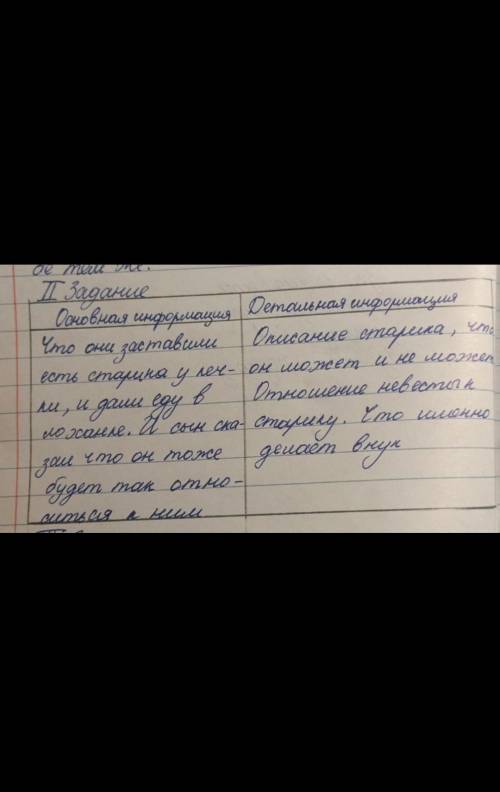 бе тем же.
II Задание
Основная информация
Что они заставили
есть старика у печ-
ки, и дали еду в
лоханке. И сын ска-
зал что он тоже
будет так отно-
ситься к ним
Детальная информация
Описание старика, что
он может и не может
Отношение невесты к
старику. Что именно
делает внук